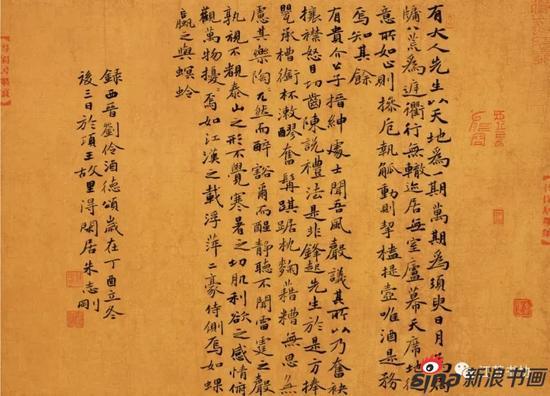 有大人先生以天地為一期萬期為須臾日月
牖八荒為庭衢行無轍迹居無室廬幕天席地縱
意所如止則操卮執觚動則挈榼提壺唯酒是務
焉知其餘
有貴介公子搢紳處士聞吾風聲議其所以乃奮袂
攘襟怒目切齒陳說禮法是非鋒起先生於是方捧
甖承槽銜杯漱醪奮髯踑踞枕麴藉糟無思無
慮其樂陶陶兀然而醉豁爾而醒靜聽不聞雷霆之聲
孰視不覩泰山之形不覺寒暑之切肌利欲之感情俯
觀萬物擾擾焉如江漢之載浮萍二豪侍側焉如蜾
蠃之與螟蛉
錄西晉劉伶酒德頌歲在丁酉立冬
後三日於項王故里得閑居朱志剛
sina新浪书画